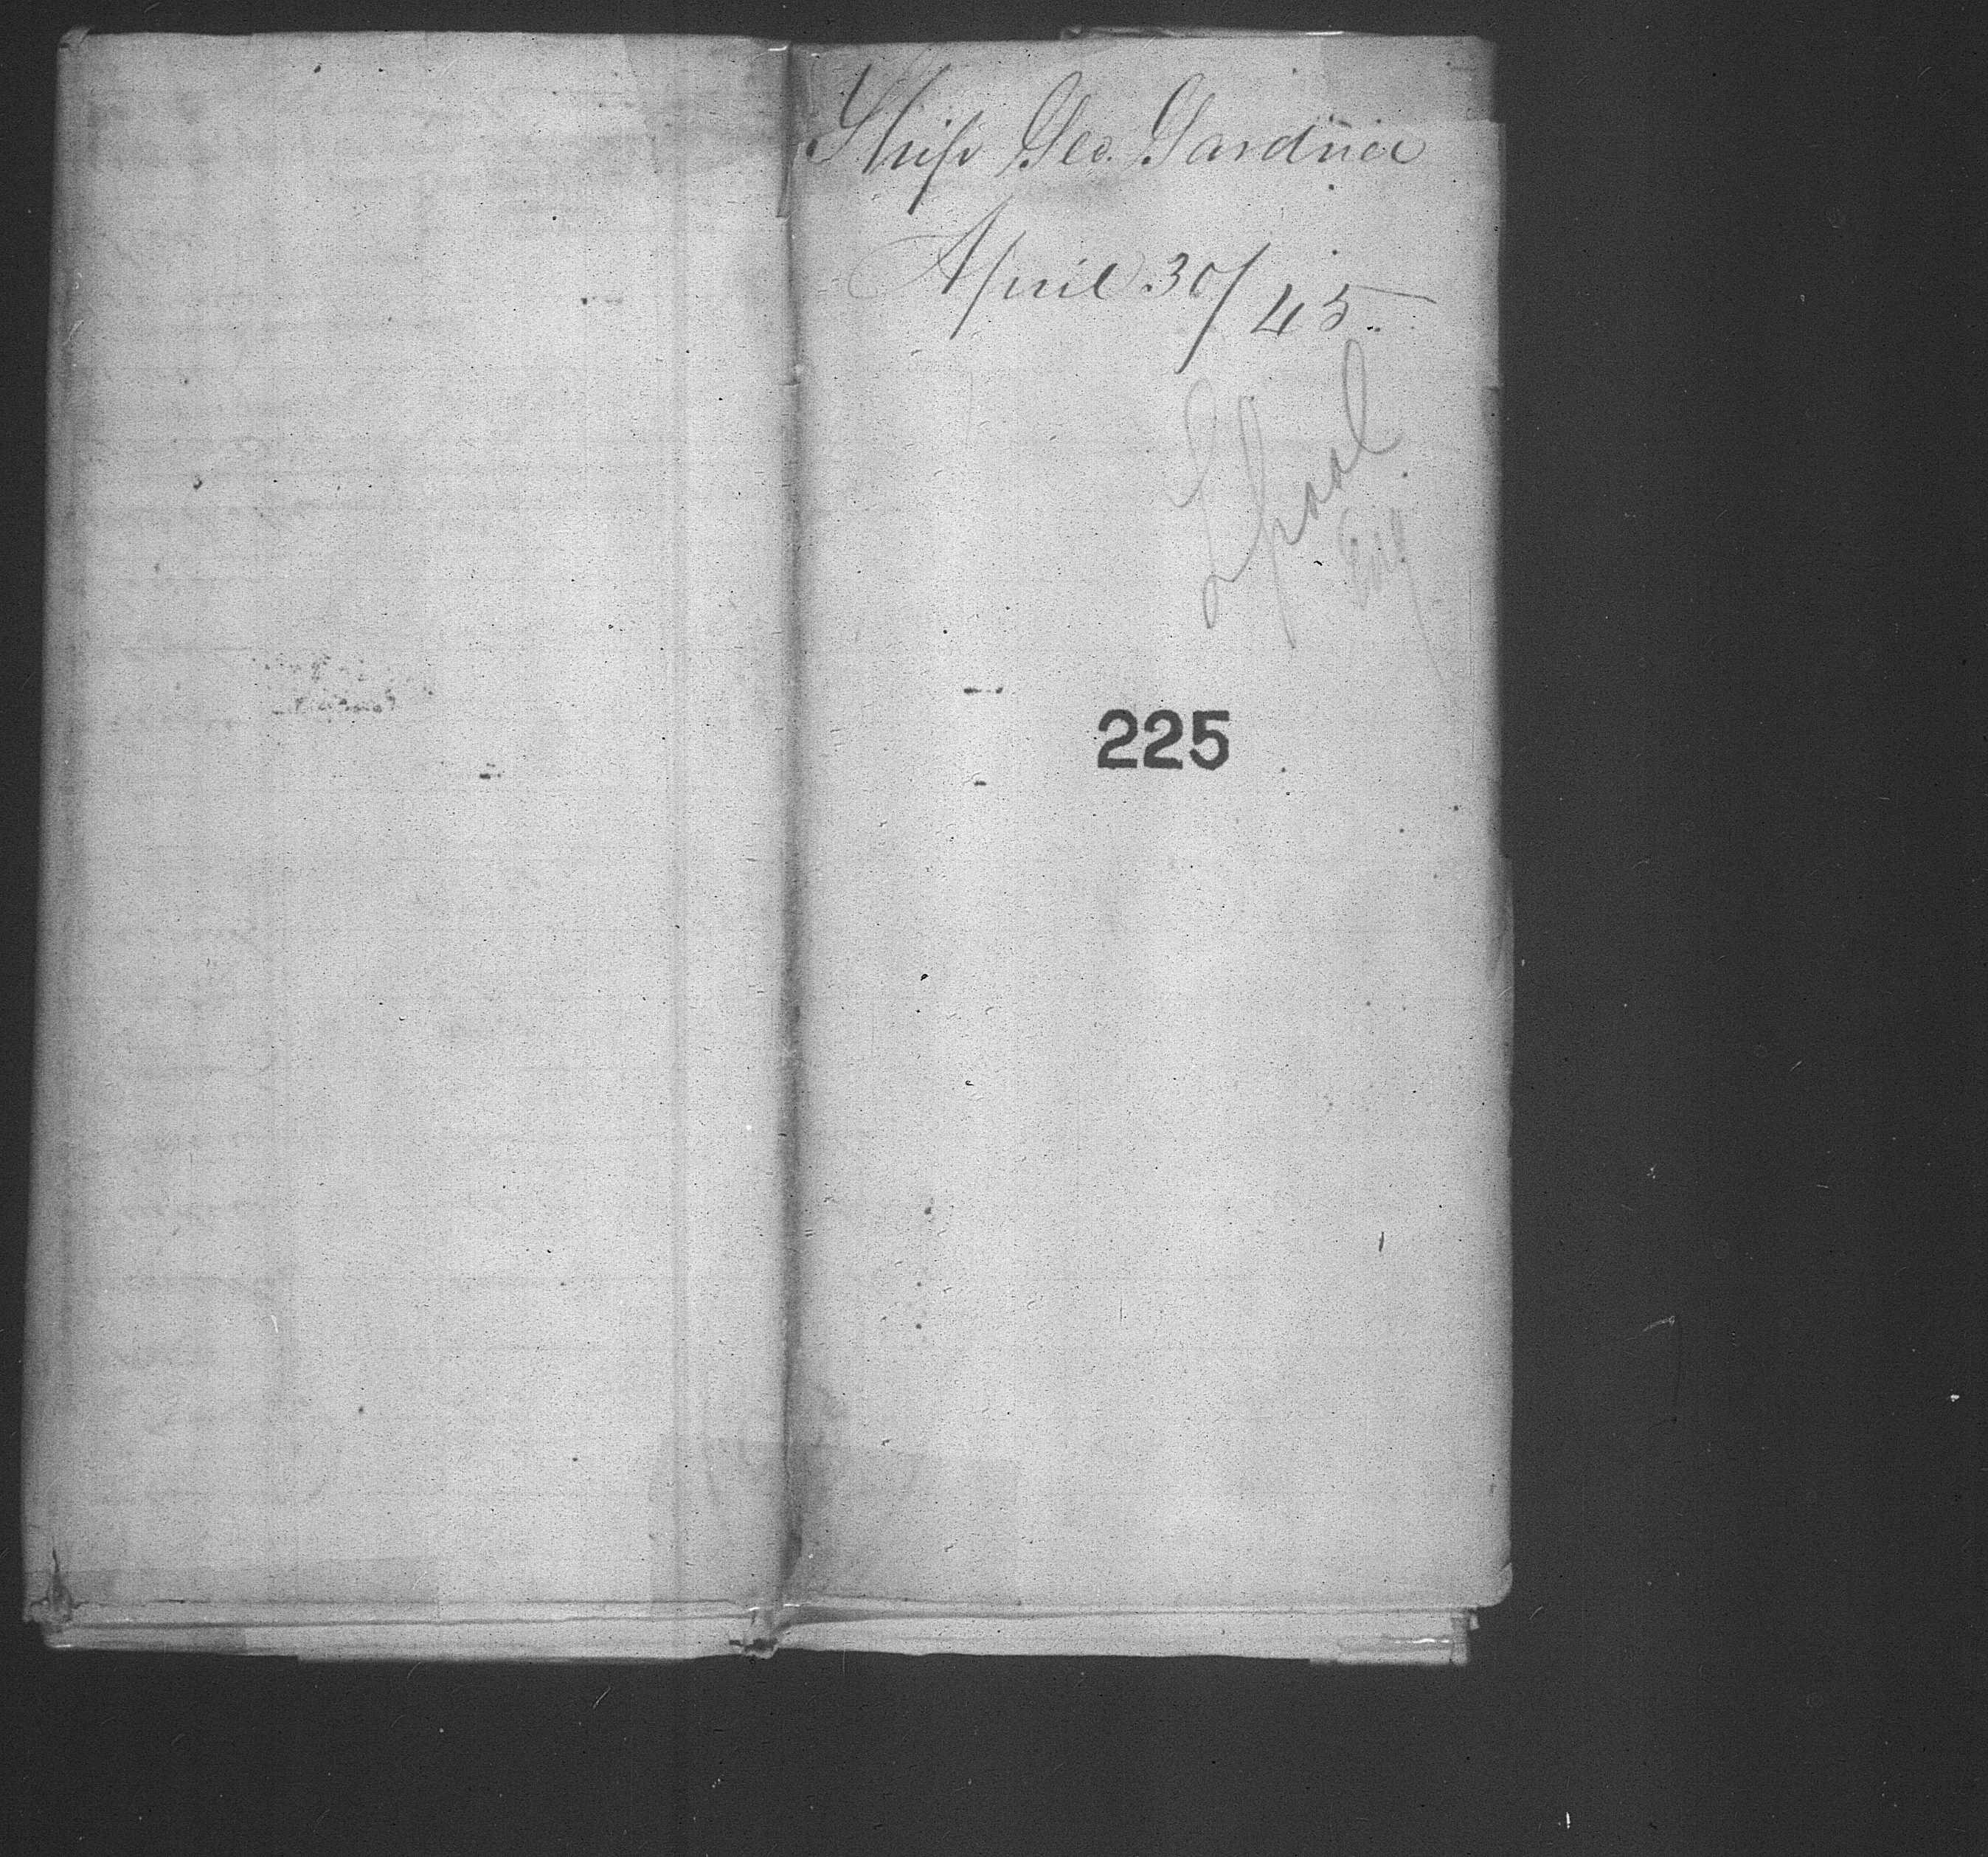 Ship Geo. Gardner
April 30/45.
Lpool
Eng
225